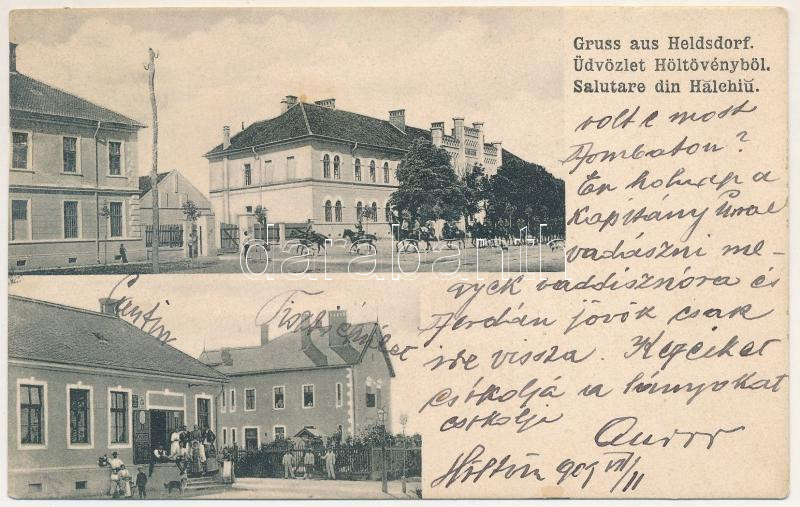 Gruss aus Heldsdorf.
Üdvözlet Höltövényböl.
Salutare din Hălchiŭ.
volt e most
Zombaton?
Én holnap a
Kapitány Úrral
vadászni me-
gyek vaddisznóra és
Szerdán jövök csak
ide vissza. Kezeiket
csókolja a lányokat
csókolja
Höltöv 909 VII/11
Cantin
Tiszti épület
darabanth